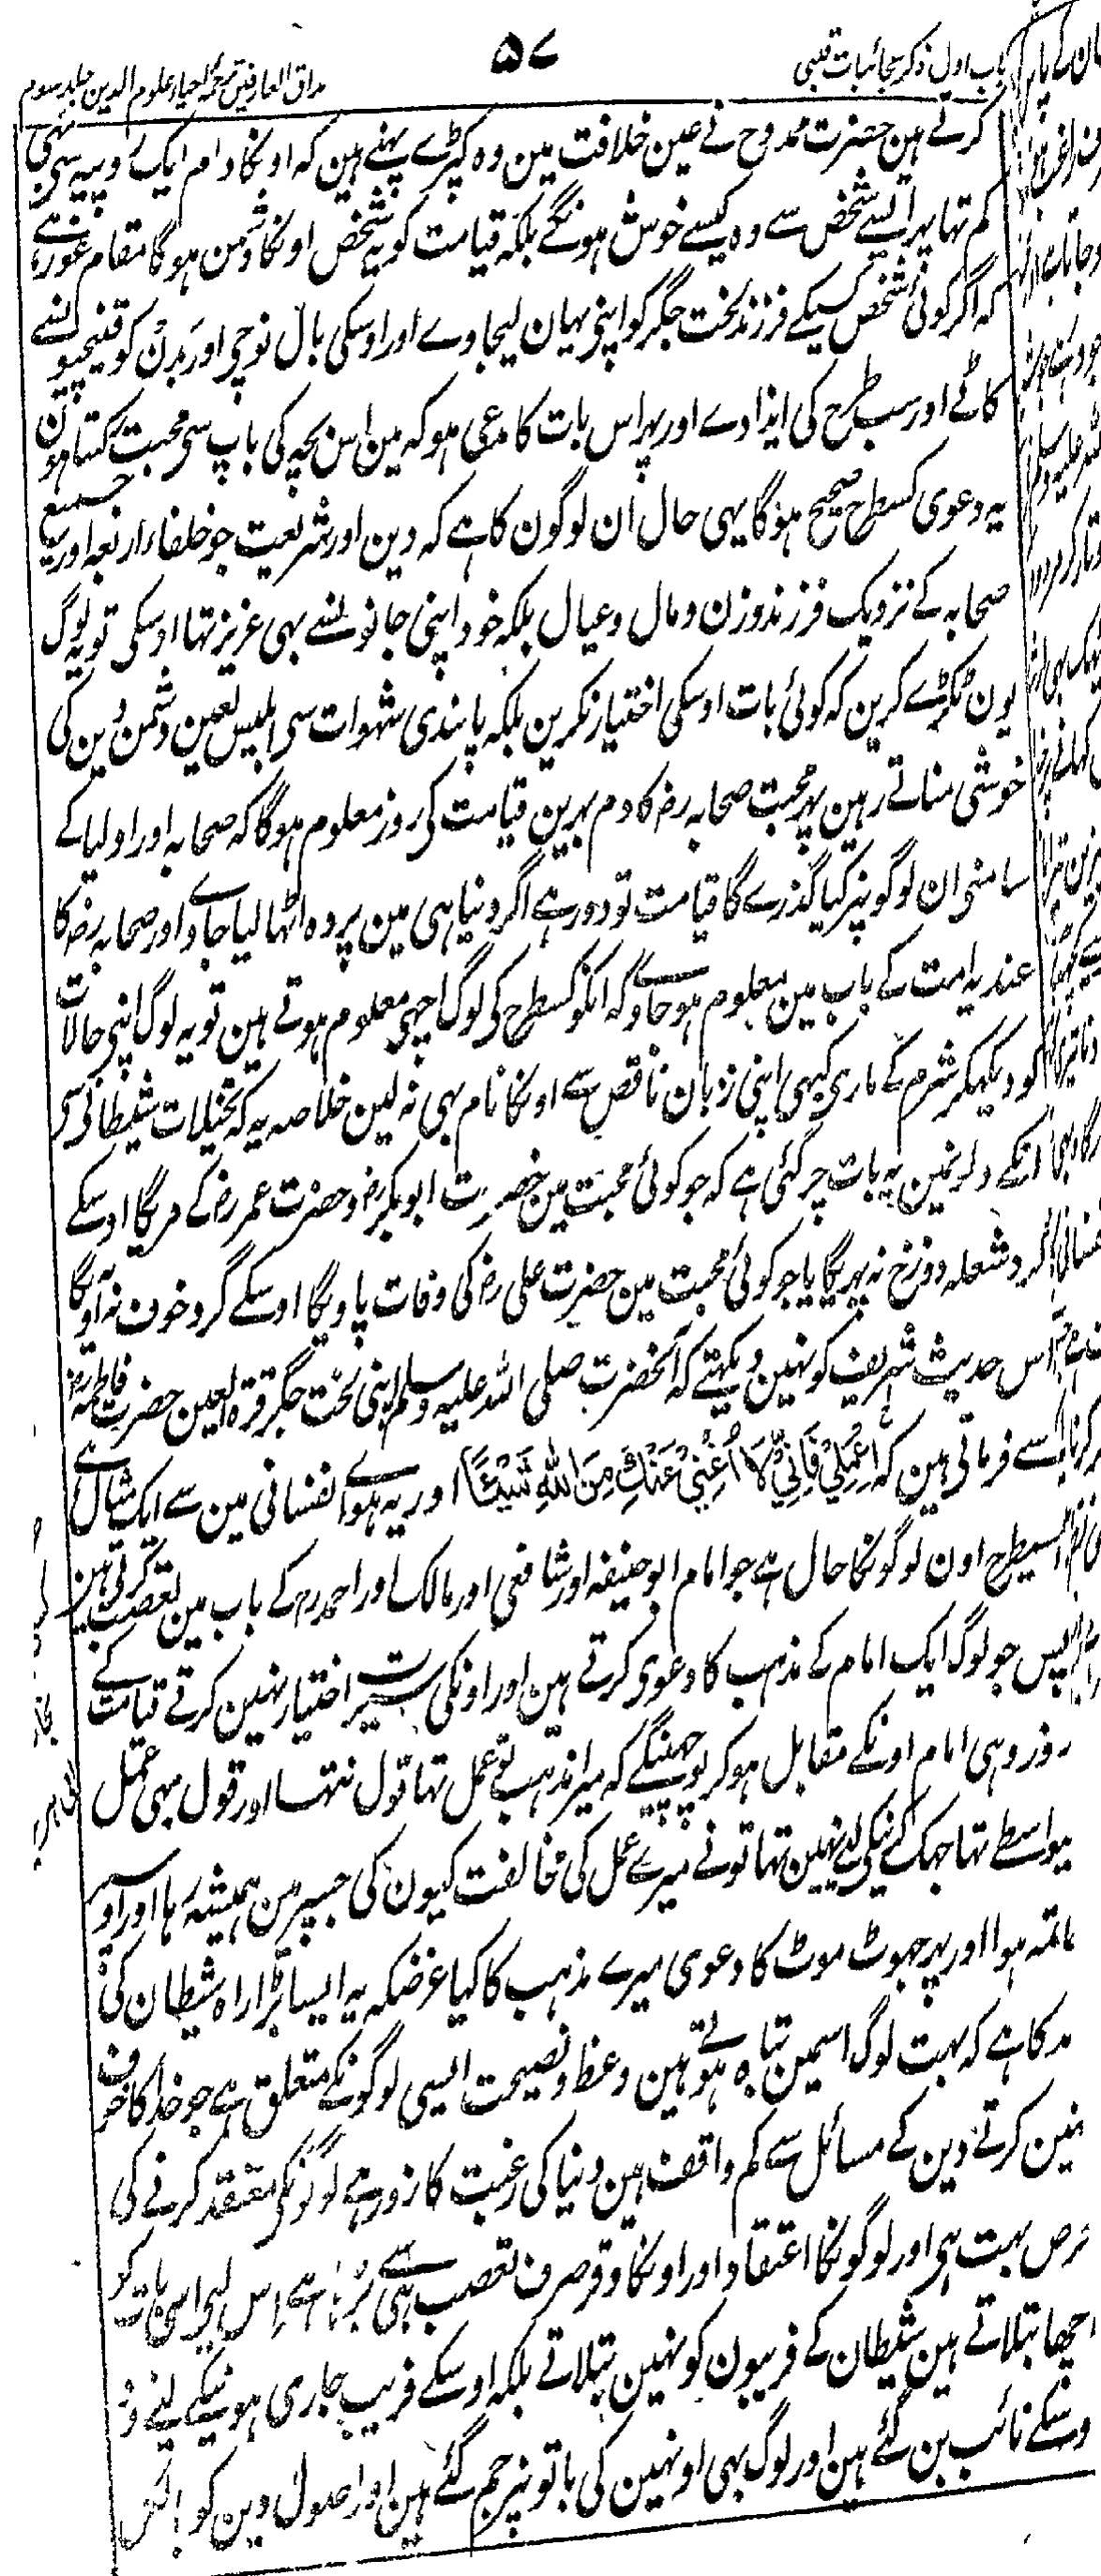 باب اول ذکر عجائبات قلبی ۵۷ مذاق العارفین ترجمہ احیاء علوم الدین جلد سوم
کرتے ہین حضرت ممدوح نے عین خلافت مین وہ کپڑے پہنے ہین کہ اونکا دام ایک روپیہ سی بہی
کم تہا پہر ایسے شخص سے وہ کیسے خوش ہونگے بلکہ قیامت کو یہ شخص اونکا دشمن ہوگا مقام غور ہے
کہ اگر کوئی شخص کسیکے فرزند لخت جگر کو اپنی یہان لیجاوے اور اوسکی بال نوچی اور بدن کو قینچیونسے
کاٹے اور سب طرح کی ایذا دے اور پہر اس بات کا مدعی ہو کہ مین اس بچہ کی باپ سی محبت رکہتا ہون
یہ دعوی کسطرح صحیح ہوگا یہی حال ان لوگون کا ہے کہ دین اور شریعت جو خلفاء اربعہ اور جمیع
صحابہ کے نزدیک فرزند و زن و مال و عیال بلکہ خود اپنی جانونسے بہی عزیز تہا اوسکی تو یہ لوگ
یون ٹکڑے کرین کہ کوئی بات اوسکی اختیار نکرین بلکہ پابندی شہوات سی ابلیس لعین دشمن دین کی
خوشی مناتے رہین پہر محبت صحابہ رض کا دم بہرین قیامت کی روز معلوم ہوگا کہ صحابہ اور اولیا کے
سامنی ان لوگونپر کیا گذرے گا قیامت تو دور ہے اگر دنیا ہی مین پردہ اٹہا لیا جاوے اور صحابہ رض کا
عندیہ امت کے باب مین معلوم ہو جاوے کہ انکو کسطرح کی لوگ اچہی معلوم ہوتے ہین تو یہ لوگ اپنی حالات
کو دیکہکر شرم کے ماری کبہی اپنی زبان ناقص سے اونکا نام بہی نہ لین خلاصہ یہ کہ تخیلات شیطانی سی
انکے دلونمین یہ بات جم گئی ہے کہ جو کوئی محبت مین حضرت ابوبکر رض و حضرت عمر رض کے مریگا اوسکے
گرد شعلہ دوزخ نہ پہریگا یا جو کوئی محبت مین حضرت علی رض کی وفات پاویگا اوسکے گرد خوف نہ آویگا
اس حدیث شریف کو نہین دیکہتے کہ آنحضرت صلی اللہ علیہ وسلم اپنی لخت جگر قرۃ العین حضرت فاطمہ رض
سے فرماتی ہین کہ اِعْمَلِیْ فَاِنِّیْ لَا اُغْنِیْ عَنْكِ مِنَ اللهِ شَیْئًا اور یہ ہواے نفسانی مین سے ایک مثال ہے
اسیطرح اون لوگونکا حال ہے جو امام ابوحنیفہ اور شافعی اور مالک اور احمد رح کے باب مین تعصب کرتی ہین
پس جو لوگ ایک امام کے مذہب کا دعوی کرتے ہین اور اونکی سیرت اختیار نہین کرتے قیامت کے
روز وہی امام اونکے مقابل ہو کر پوچہینگے کہ میرا مذہب تو عمل تہا قول نتہا اور قول بہی عمل
یواسطے تہا جہک کے لئے نہین تہا تو نے میرے عمل کی مخالفت کیون کی جسپر مین ہمیشہ رہا اور اوسپر
خاتمہ ہوا اور پہر جہوٹ موٹ کا دعوی میرے مذہب کا کیا غرضکہ یہ ایسا بڑا راہ شیطان کی
مد کا ہے کہ بہت لوگ اسمین تباہ ہوتے ہین وعظ و نصیحت ایسی لوگونکے متعلق ہے جو خدا کا خوف
نہین کرتے دین کے مسائل سے کم واقف ہین دنیا کی رغبت کا زور ہے لوگونکی معتقد کرنے کی
حرص بہت ہی اور لوگونکا اعتقاد اور اونکا وقر صرف تعصب ہی سے بڑہتا ہے اس لیے اسی بات کو
اچہا بتلاتے ہین شیطان کے فریبون کو نہین بتلاتے بلکہ اوسکے فریب جاری ہونیکے لیئے خود
اوسکے نائب بن گئے ہین اور لوگ بہی اونہین کی باتونپر جم گئے ہین اور اصول دین کو بالکل